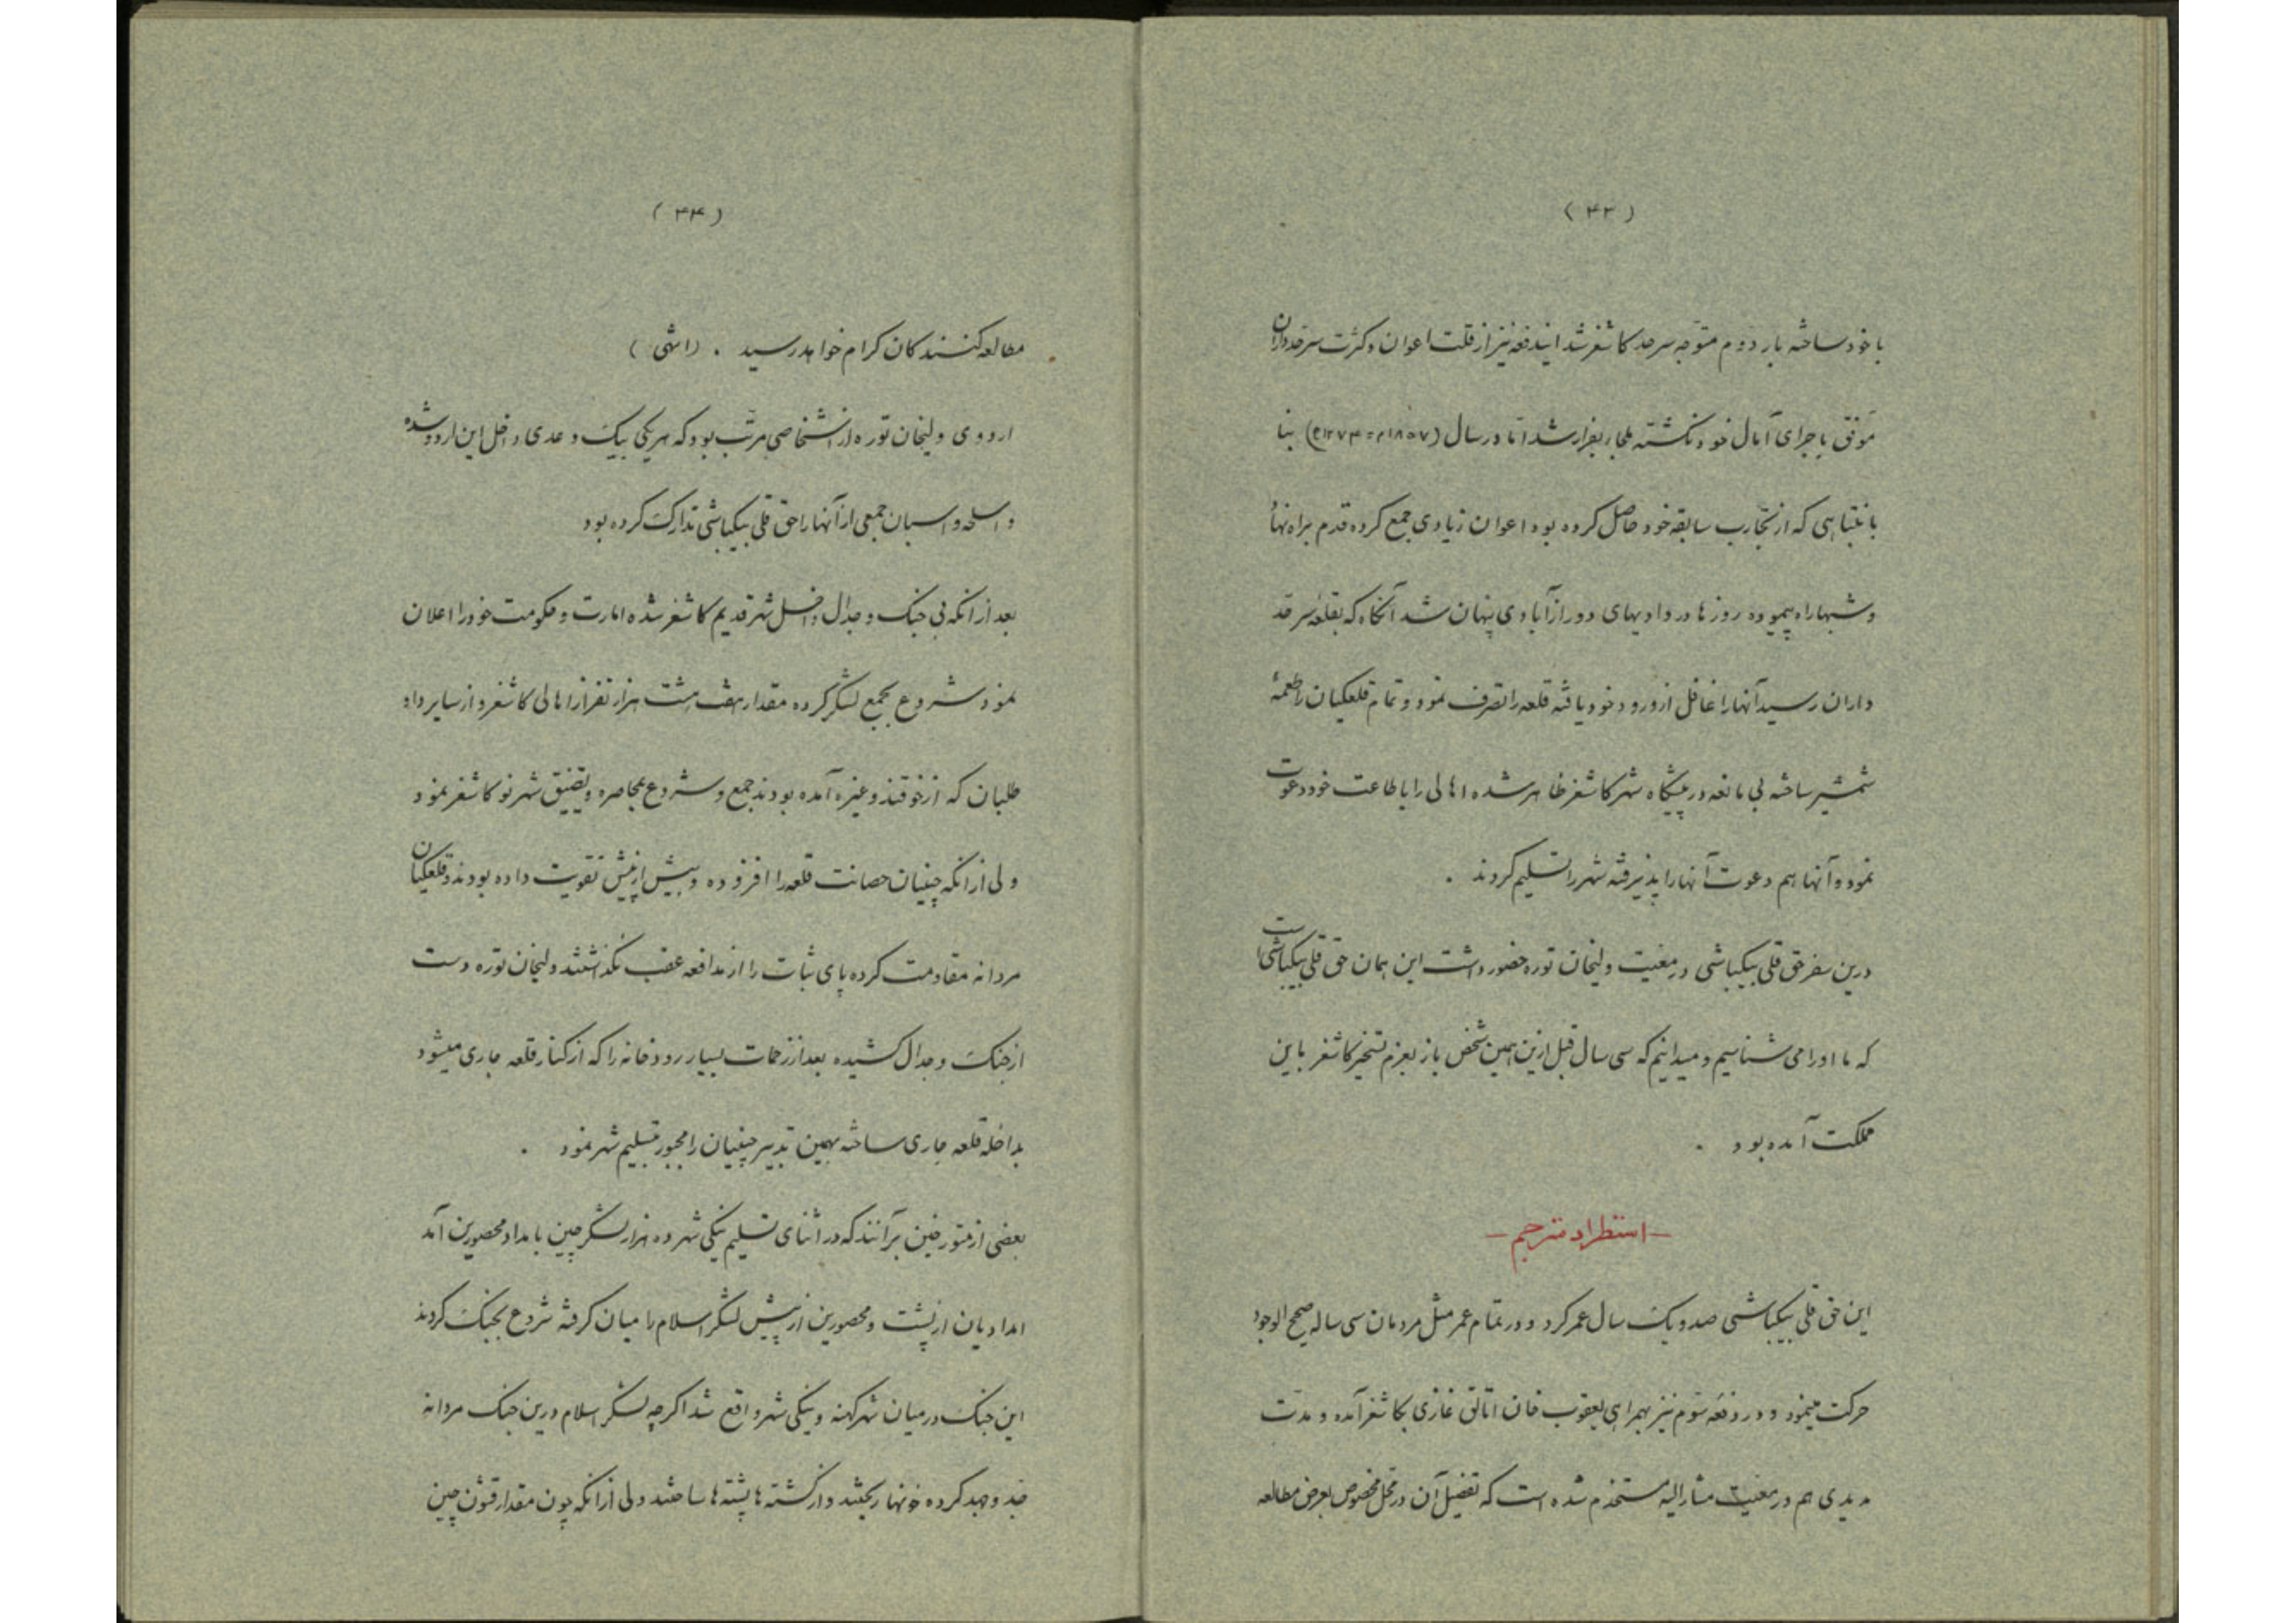 (۴۳)
با خود ساخته بار دوم متوجه سرحد کاشغر شد ایندفعه نیز از قلت اعوان و کثرت سرحدداران
موفق باجرای آمال خود نکشته ملجا بفرار شد اما در سال (۱۸۵۷م = ۱۲۷۴ه) بنا
بانتباهی که از تجارب سابقه خود حاصل کرده بود اعوان زیادی جمع کرده قدم براه نهاد
و شبها راه پیموده روزها در وادیهای دور از آبادی پنهان شد آنکاه که بقلعه سرحد
داران رسید آنها را غافل از ورود خود یافته قلعه را تصرف نمود و تمام قلعکیان را طعمهٔ
شمشیر ساخته بی مانعه در پیشکاه شهر کاشغر ظاهر شده اهالی را باطاعت خود دعوت
نمود و آنها هم دعوت آنها را پذیرفته شهر را تسلیم کردند .
درین سفر حق قلی بیکباشی در معیت ولیخان توره حضور داشت این همان حق قلی بیکباشی است
که ما او را می شناسیم و میدانیم که سی سال قبل ازین همین شخص باز بعزم تسخیر کاشغر باین
مملکت آمده بود .
— استطراد مترجم —
این حق قلی بیکباشی صد و یک سال عمر کرد و در تمام عمر مثل مردمان سی ساله صحیح الوجود
حرکت مینمود و در دفعه سوم نیز بهمراهی یعقوب خان اتالق غازی بکاشغر آمده و مدت
مدیدی هم در معیت مشارالیه مستخدم شده است که تفصیل آن در محل مخصوص بعرض مطالعه
(۴۴)
مطالعه کنندکان کرام خواهد رسید . (انتهی)
اردوی ولیخان توره از اشخاصی مرتب بود که هر یکی بیک وعدی داخل این اردو شده
و اسلحه و اسبان جمعی از آنها را حق قلی بیکباشی تدارک کرده بود
بعد از انکه بی جنک و جدال داخل شهر قدیم کاشغر شده امارت و حکومت خود را اعلان
نمود شروع بجمع لشکر کرده مقدار هفت هشت هزار نفر از اهالی کاشغر و از سایر داو
طلبان که از خوقند و غیره آمده بودند جمع و شروع بمحاصره و تضییق شهر نو کاشغر نمود
ولی از انکه چینیان حصانت قلعه را افزوده و بیش از پیش تقویت داده بودند و قلعکیان
مردانه مقاومت کرده پای ثبات را از مدافعه عقب نکذاشتند ولیخان توره دست
از جنک و جدال کشیده بعد از زحمات بسیار رودخانه را که از کنار قلعه جاری میشود
بداخله قلعه جاری ساخته بهمین تدبیر چینیان را مجبور تسلیم شهر نمود .
بعضی از متورخین برآنند که در اثنای تسلیم ینکی شهر ده هزار لشکر چین بامداد محصورین آمد
امدادیان از پشت و محصورین از پیش لشکر اسلام را میان کرفته شروع بجنک کردند
این جنک در میان شهر کهنه و ینکی شهر واقع شد اکرچه لشکر اسلام درین جنک مردانه
جد و جهد کرده خونها ریختند و از کشته ها پشته ها ساختند ولی از انکه چون مقدار قشون چین